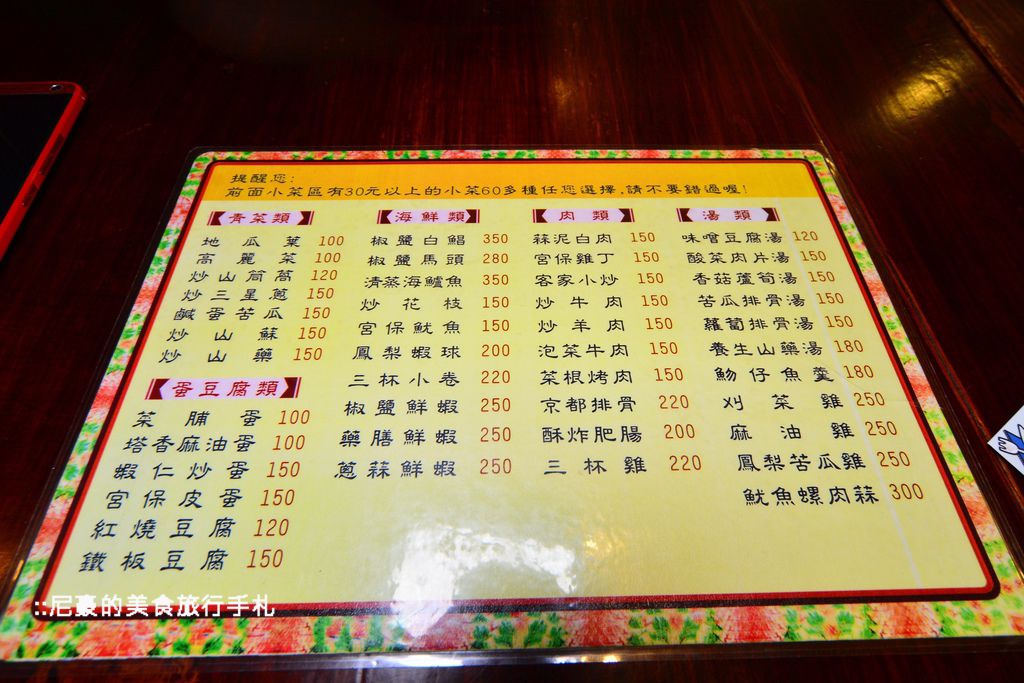 提醒您:
前面小菜區有30元以上的小菜60多種任您選擇,請不要錯過喔!
青菜類
地瓜葉 100
高麗菜 100
炒山筒蒿 120
炒三星蔥 150
鹹蛋苦瓜 150
炒山蘇 150
炒山藥 150
蛋豆腐類
菜脯蛋 100
塔香麻油蛋 100
蝦仁炒蛋 150
宮保皮蛋 150
紅燒豆腐 120
鐵板豆腐 150
海鮮類
椒鹽白鯧 350
椒鹽馬頭 280
清蒸海鱸魚 350
炒花枝 150
宮保魷魚 150
鳳梨蝦球 200
三杯小卷 220
椒鹽鮮蝦 250
藥膳鮮蝦 250
蔥蒜鮮蝦 250
肉類
蒜泥白肉 150
宮保雞丁 150
客家小炒 150
炒牛肉 150
炒羊肉 150
泡菜牛肉 150
菜根烤肉 150
京都排骨 220
酥炸肥腸 200
三杯雞 220
湯類
味噌豆腐湯 120
酸菜肉片湯 150
香菇蘆筍湯 150
苦瓜排骨湯 150
蘿蔔排骨湯 150
養生山藥湯 180
魩仔魚羹 180
刈菜雞 250
麻油雞 250
鳳梨苦瓜雞 250
魷魚螺肉蒜 300
::尼豪的美食旅行手札